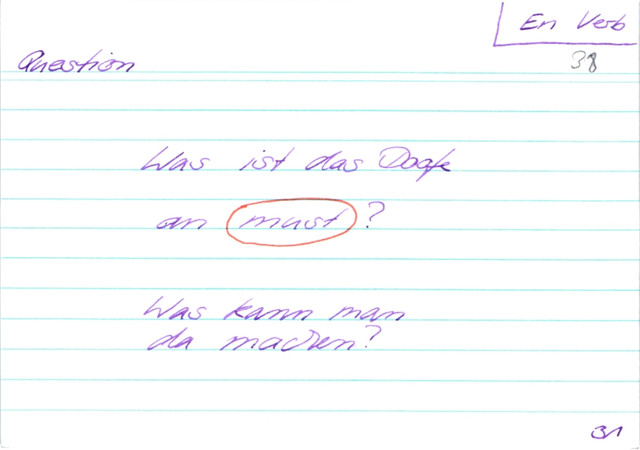 En Verb
38
Question
Was ist das Doofe
an must?
Was kann man
da machen?
31